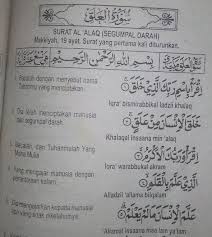 سُورَةُ الْعَلَقِ
SURAT AL 'ALAQ (SEGUMPAL DARAH)
Makkiyah, 19 ayat. Surat yang pertama kali diturunkan.
بِسْمِ اللهِ الرَّحْمٰنِ الرَّحِيْمِ
1. Bacalah dengan menyebut nama
Tuhanmu yang menciptakan.
اِقْرَأْ بِاسْمِ رَبِّكَ الَّذِيْ خَلَقَ ۝١
Iqra' bismirabbikal ladzii khalaq
2. Dia telah menciptakan manusia
dari segumpal darah.
خَلَقَ الْاِنْسَانَ مِنْ عَلَقٍ ۝٢
Khalaqal insaana min 'alaq
3. Bacalah, dan Tuhanmulah Yang
Maha Mulia
اِقْرَأْ وَرَبُّكَ الْاَكْرَمُ ۝٣
Iqra' warabbukal akram
4. Yang mengajar manusia dengan
الَّذِيْ عَلَّمَ بِالْقَلَمِ ۝٤
Alladzii 'allama bilqalam
5. Dia mengajarkan kepada manusia
apa yang tidak diketahuinya.
عَلَّمَ الْاِنْسَانَ مَا لَمْ يَعْلَمْ
'Allamal insaana maa lam ya'lam